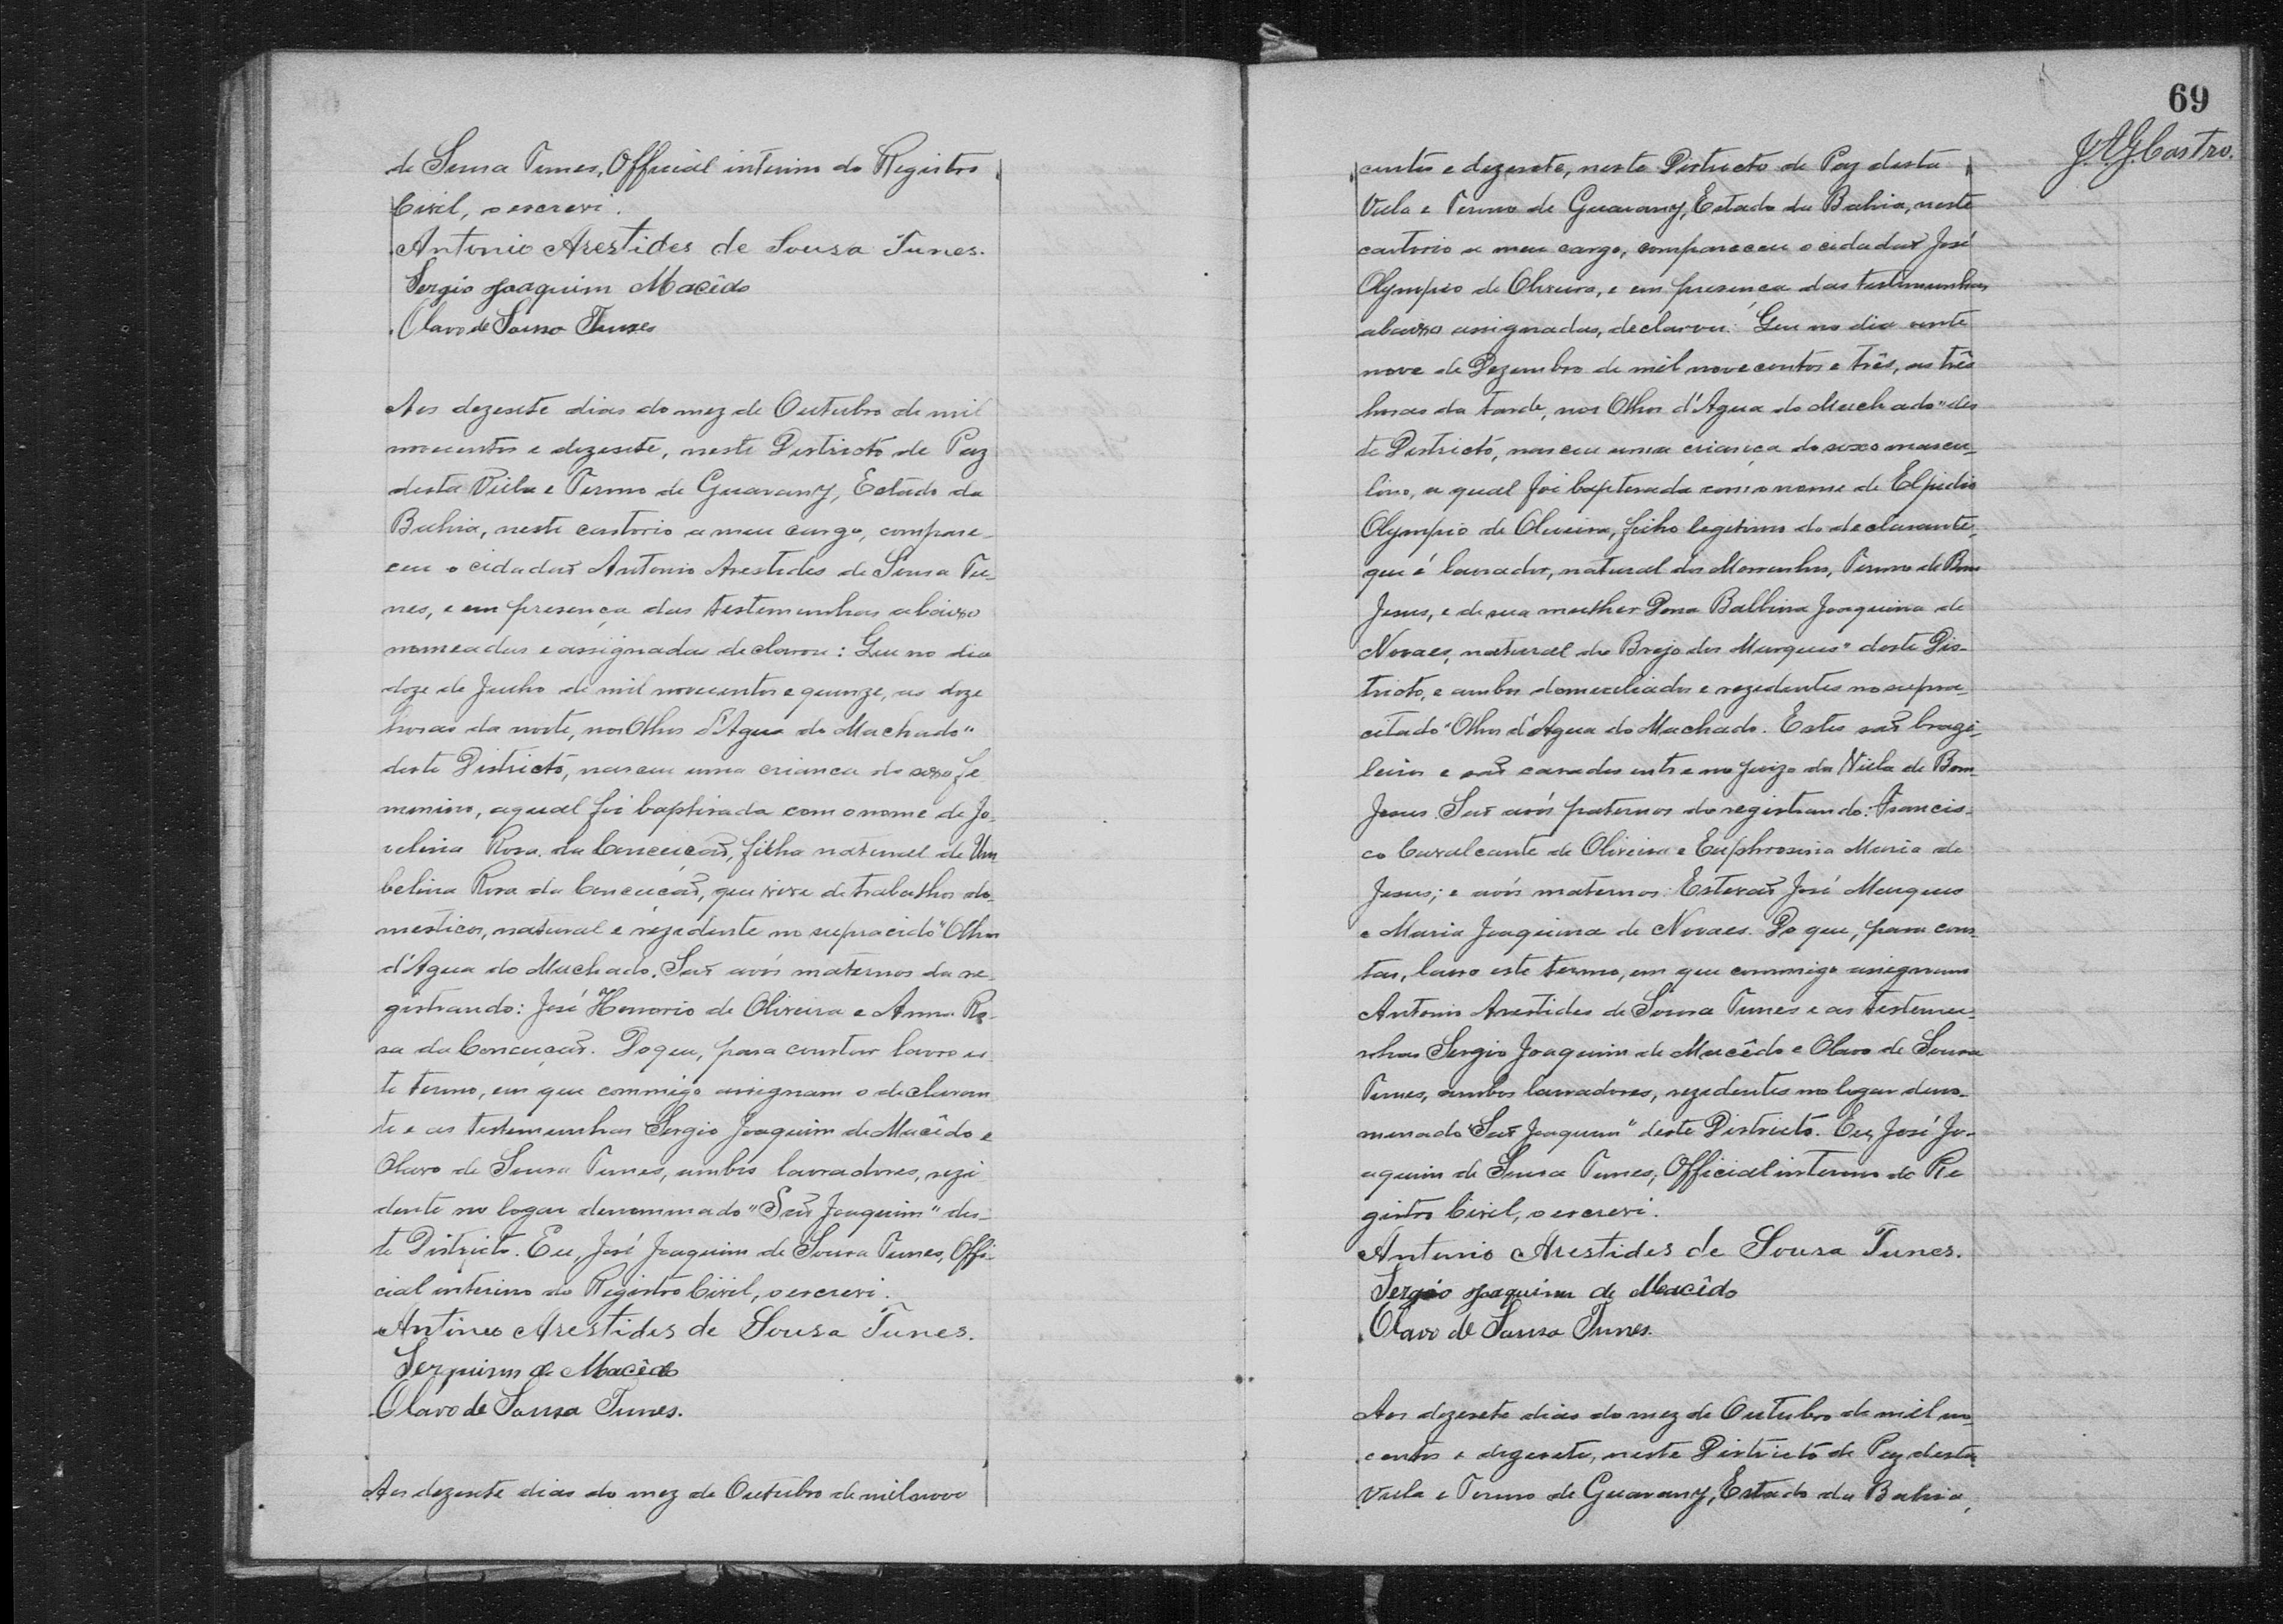 de Sousa Tunes, Official interino do Registro
Civil, o escrevi.
Antonio Arestides de Sousa Tunes.
Sergio Joaquim Macêdo
Olavo de Sousa Tunes
Aos dezesete dias do mez de Outubro de mil
novecentos e dezesete, neste Districto de Paz
desta Villa e Termo de Guarany, Estado da
Bahia, neste cartorio a meu cargo, compare-
ceu o cidadão Antonio Arestides de Sousa Tu-
nes, e em presença das testemunhas abaixo
nomeadas e assignadas declarou: Que no dia
doze de Junho de mil novecentos e quinze, as doze
horas da noite, nos Olhos d'Agua do Machado"
deste Districto, nasceu uma criança do sexo fe
menino, a qual foi baptisada com o nome de Jo-
velina Rosa da Conceição, filha natural de Um
belina Rosa da Conceição, que vive de trabalhos do-
mesticos, natural e rezidente no supracido "Olhos
d'Agua do Machado. São avós maternos da re-
gistrando: José Honorio de Oliveira e Anna Ro-
sa da Conceição. Do que, para constar lavro es
te termo, em que commigo assignam o declaran
te e as testemunhas Sergio Joaquim de Macêdo e
Olavo de Sousa Tunes, ambos lavradores, rezi
dente no logar denominado "São Joaquim" des-
te Districto. Eu, José Joaquim de Sousa Tunes, Offi-
cial interino do Registro Civil, o escrevi.
Antonio Arestides de Sousa Tunes.
de Macêdo
Olavo de Sousa Tunes.
Aos dezesete dias do mez de Outubro de mil nove
69
J. A. G. Castro.
centos e dezesete, neste Districto de Paz desta
Villa e Termo de Guarany, Estado da Bahia, neste
cartorio a meu cargo, compareceu o cidadão José
Olympio de Oliveira, e em presença das testimunhas
abaixo assignadas, declarou: Que no dia vinte
nove de Dezembro de mil novecentos e três, as três
horas da tarde, nos Olhos d'Agua do Machado" des
te Districto, nasceu uma criança do sexo mascu-
lino, a qual foi baptisada com o nome de Elpidio
Olympio de Oliveira, filho legitimo do declarante,
que é lavrador, natural dos Morrinhos, Termo de Bom
Jesus, e de sua mulher Dona Balbina Joaquina de
Novaes, natural do Brejo dos Marques" deste Dis-
tricto, e ambos domiciliados e rezidentes no supra-
citado "Olhos d'Agua do Machado. Estes são brazi-
leiros e são casados ante no Juizo da Villa de Bom
Jesus. São avós paternos do registrando: Francis-
co Cavalcante de Oliveira e Euphrosina Maria de
Jesus; e avós maternos: Estevão José Marques
e Maria Joaquina de Novaes. Do que, para cons-
tar, lavro este termo, em que commigo assignam
Antonio Arestides de Sousa Tunes e as testemu-
nhas Sergio Joaquim de Macêdo e Olavo de Sousa
Tunes, ambos lavradores, rezidentes no logar deno-
minado "São Joaquim" deste Districto. Eu, José Jo-
aquim de Sousa Tunes, Official interino do Re
gistro Civil, o escrevi.
Antonio Arestides de Sousa Tunes.
Sergio Joaquim de Macêdo
Olavo de Sousa Tunes.
Aos dezesete dias do mez de Outubro de mil no-
centos e dezesete, neste Districto de Paz desta
Villa e Termo de Guarany, Estado da Bahia,